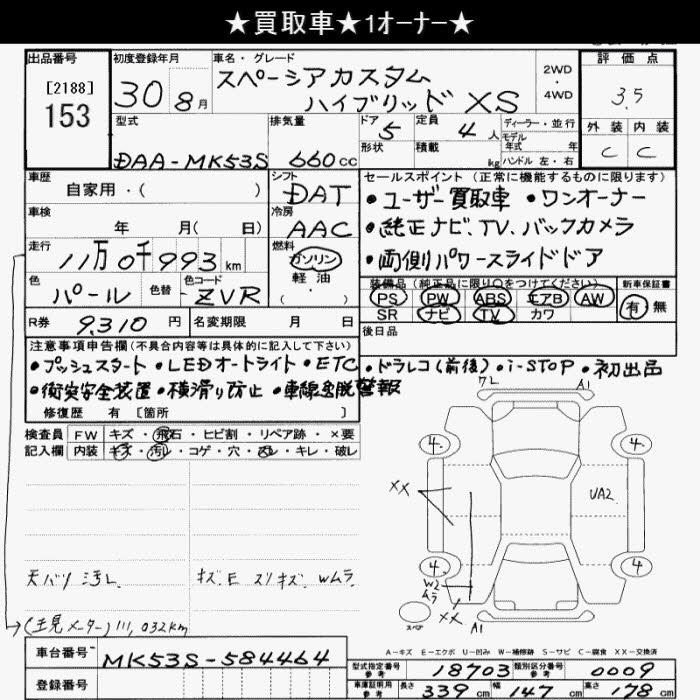 ★買取車★1オーナー★
出品番号
[2188]
153
初度登録年月
30 8月
車名・グレード
スペーシアカスタム
ハイブリッド XS
2WD
・
4WD
評価点
3.5
外装 内装
C C
型式
DAA-MK53S
排気量
660cc
ドア
5
定員
4人
形状
積載
kg
ディーラー・並行
モデル
年式 年
ハンドル 左・右
車歴
自家用・( )
シフト
DAT
車検
年 月( 日)
冷房
AAC
走行
11万0千993km
燃料
ガソリン
軽油
( ・ )
色
パール
色替
色コード
ZVR
R券
9,310円
名変期限 月 日
セールスポイント(正常に機能するものに限ります)
・ユーザー買取車 ・ワンオーナー
・純正ナビ、TV、バックカメラ
・両側パワースライドドア
装備品(純正品に限り○をつけてください)
PS PW ABS エアB AW
SR ナビ TV カワ
新車保証書
有・無
後日品
注意事項申告欄(不具合内容等は具体的に記入して下さい)
・プッシュスタート ・LEDオートライト ・ETC ・ドラレコ(前後) ・i-STOP ・初出品
・衝突安全装置 ・横滑り防止 ・車線逸脱警報
修復歴 有 [箇所 ]
検査員
記入欄
FW キズ・飛石・ヒビ割・リペア跡・×要
内装 キズ・汚レ・コゲ・穴・スレ・キレ・破レ
天バリ汚レ
キズ.E スリキズ. Wムラ
(主見メーター)111,032km
ワレ
A1
4
4
XX
UA2
4
4
W2
ムラ
XX
A1
スペア
A-キズ E-エクボ U-凹み W-補修跡 S-サビ C-腐食 XX-交換済
車台番号
MK53S-584464
登録番号
型式指定番号
参考
18703
類別区分番号
参考
0009
車庫証明用
参考
長さ 339cm 幅 147cm 高さ 78cm